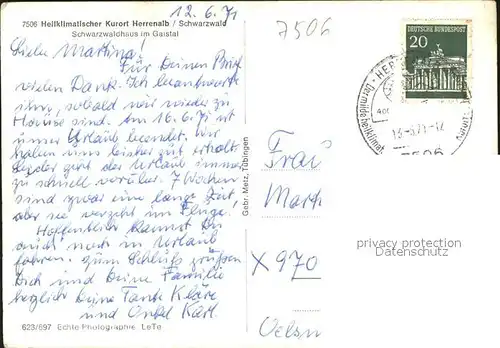 12.6.71
7506
7506 Heilklimatischer Kurort Herrenalb / Schwarzwald
Schwarzwaldhaus im Gaistal
Liebe Martina!
Für Deinen Brief
vielen Dank. Ich beantworte
ihn, sobald wir wieder zu
Hause sind. Am 16.6.71 ist
unser Urlaub beendet. Wir
haben uns bisher gut erholt.
Leider geht der Urlaub immer
zu schnell vorüber. 7 Wochen
sind zwar eine lange Zeit,
aber sie vergeht im Fluge.
Hoffentlich kannst Du
auch noch in Urlaub
fahren. Zum Schluß grüßen
Dich und Deine Familie
herzlich Deine Tante Kläre
und Onkel Karl.
623/697 Echte Photographie LeTe
Gebr. Metz, Tübingen
DEUTSCHE BUNDESPOST
20
7506
Frau
Mart
X 970
Oelsn
privacy protection
Datenschutz